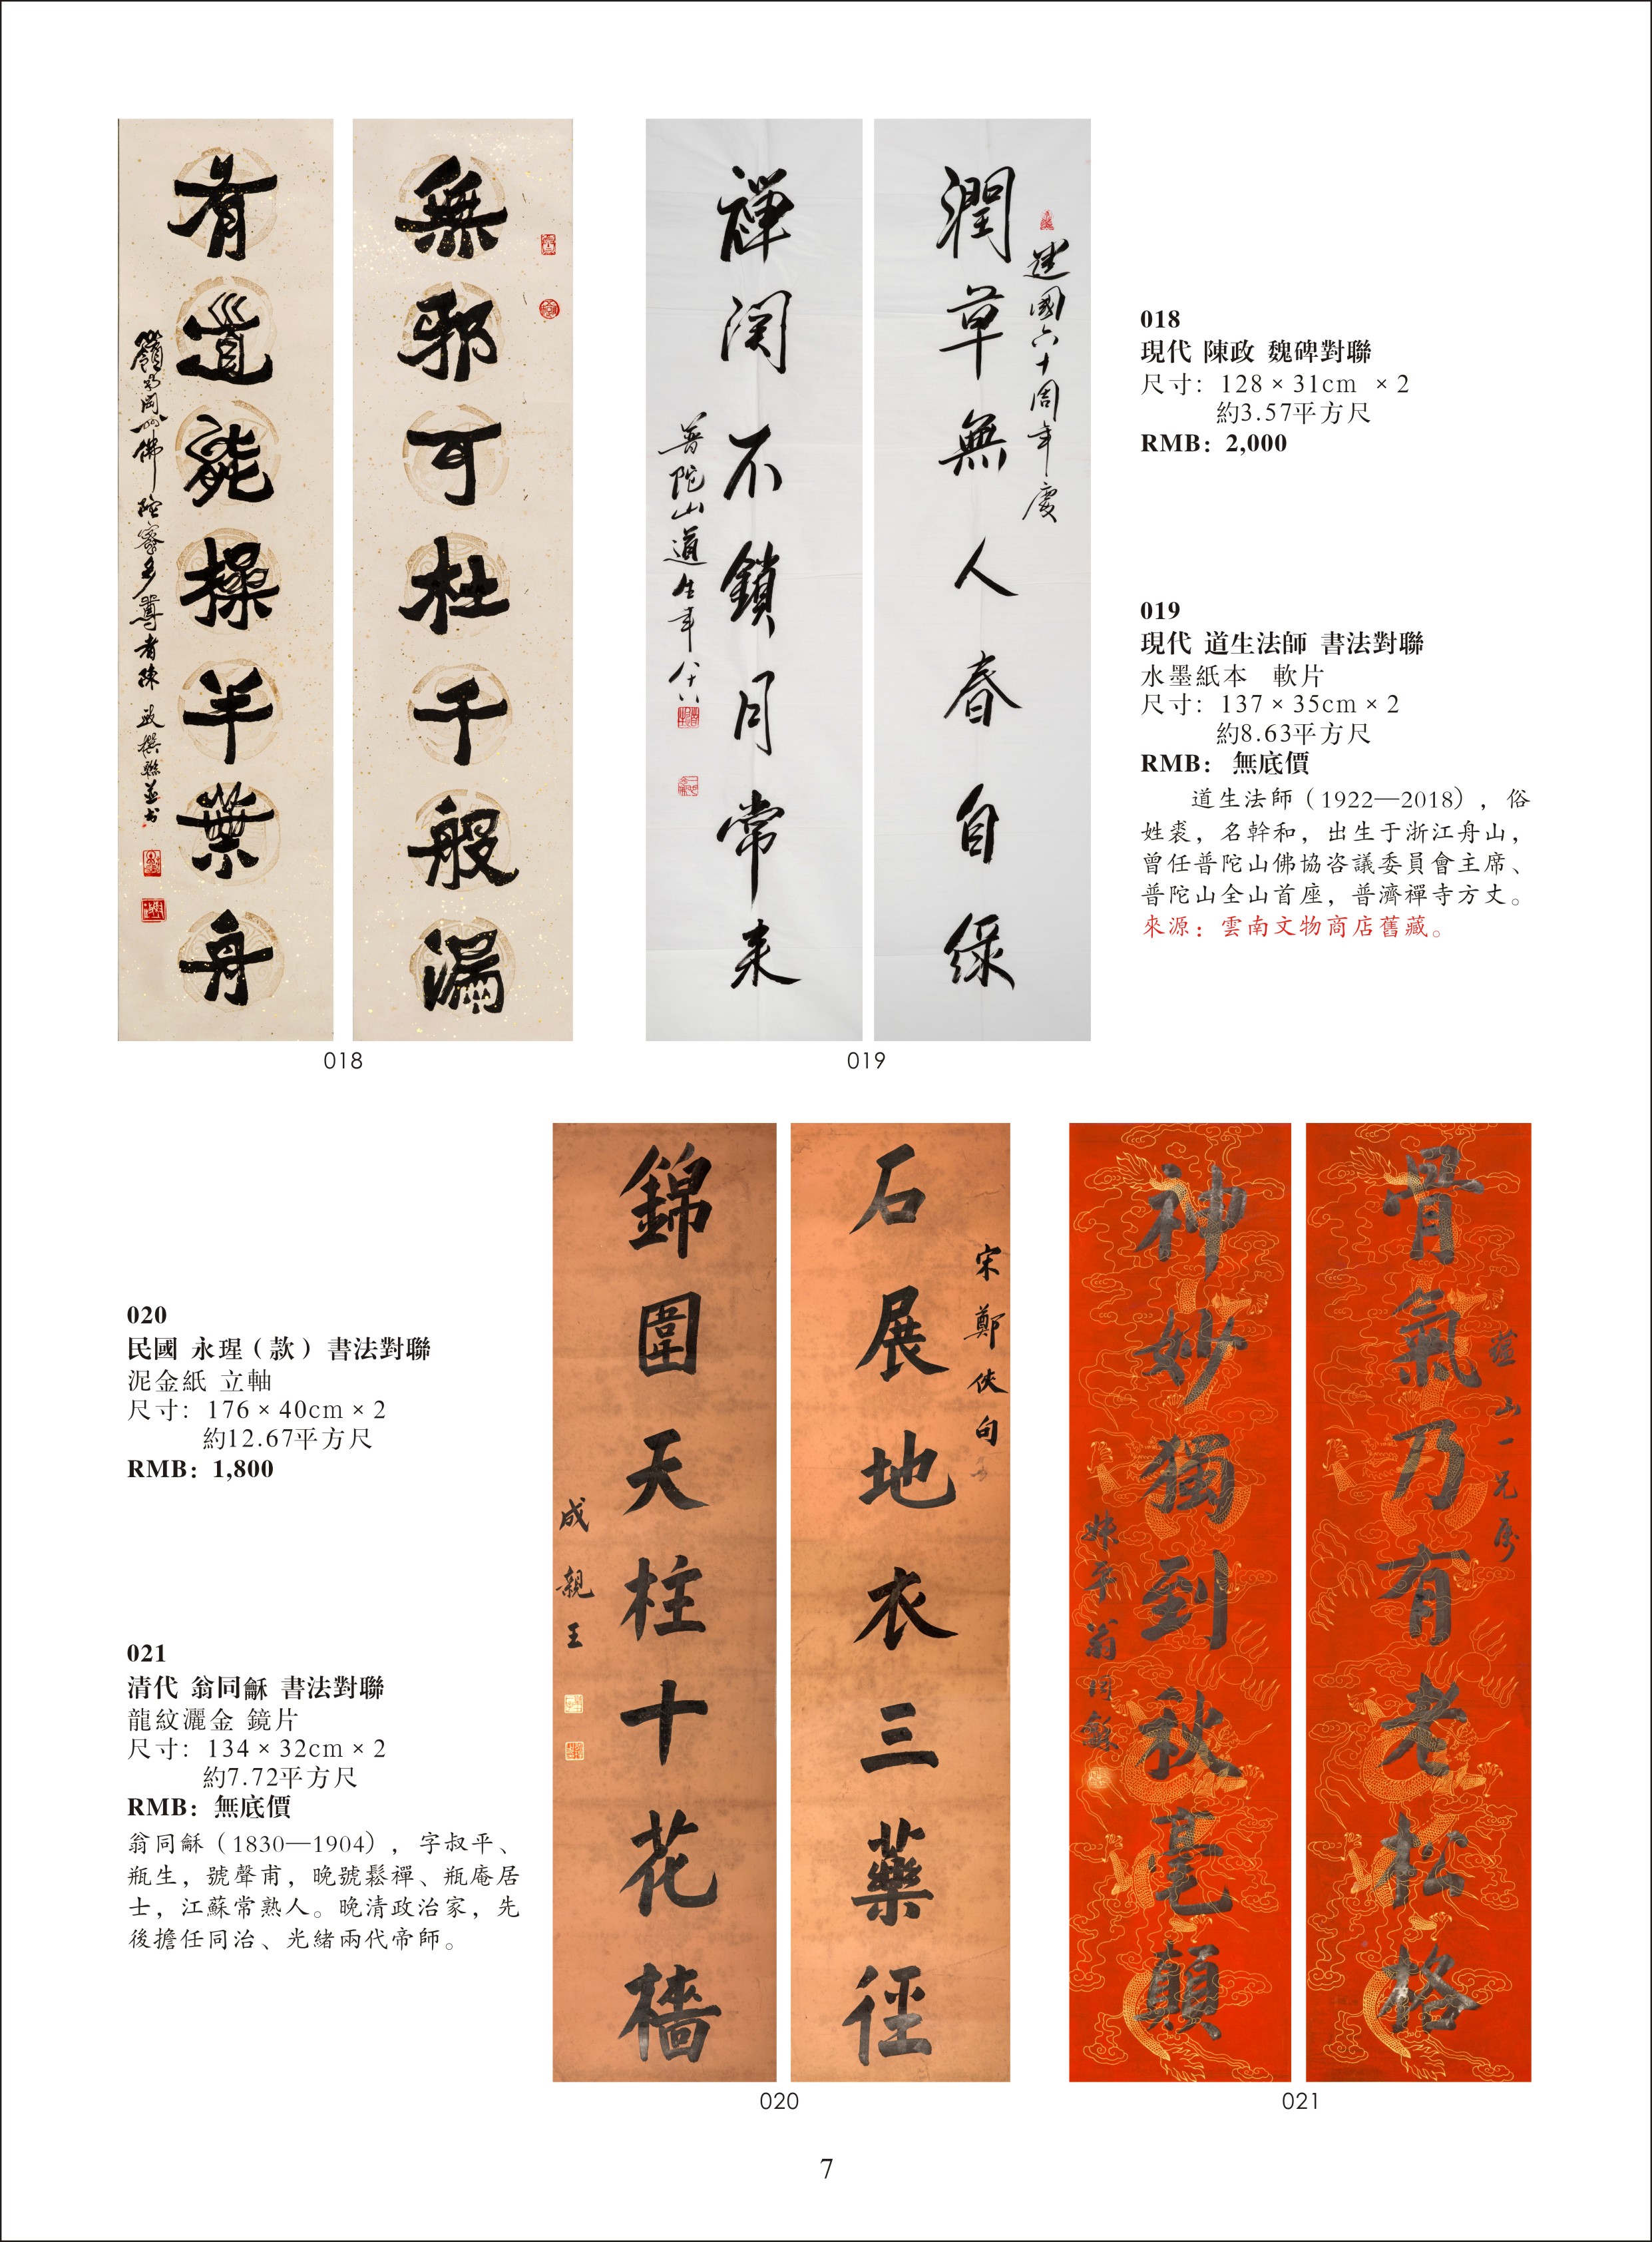 無邪可杜千般漏
有道能操半葉舟
嶺南岡州佛陀密多尊者陳政撰聯並書
018
建國六十周年慶
澗草無人春自綠
禪関不鎖月常來
普陀山道生年八十八
019
018
現代 陳政 魏碑對聯
尺寸：128×31cm ×2
約3.57平方尺
RMB：2,000
019
現代 道生法師 書法對聯
水墨紙本 軟片
尺寸：137×35cm×2
約8.63平方尺
RMB： 無底價
道生法師（1922—2018），俗
姓裘，名幹和，出生于浙江舟山，
曾任普陀山佛協咨議委員會主席、
普陀山全山首座，普濟禪寺方丈。
來源：雲南文物商店舊藏。
020
民國 永瑆（款）書法對聯
泥金紙 立軸
尺寸：176×40cm×2
約12.67平方尺
RMB：1,800
021
清代 翁同龢 書法對聯
龍紋灑金 鏡片
尺寸：134×32cm×2
約7.72平方尺
RMB：無底價
翁同龢（1830—1904），字叔平、
瓶生，號聲甫，晚號鬆禪、瓶庵居
士，江蘇常熟人。晚清政治家，先
後擔任同治、光緒兩代帝師。
宋鄭俠句
石展地衣三藥徑
錦圍天柱十花檣
成親王
020
山一兄屬
骨氣乃有老松格
神妙獨到秋毫顛
叔平翁同龢
021
7